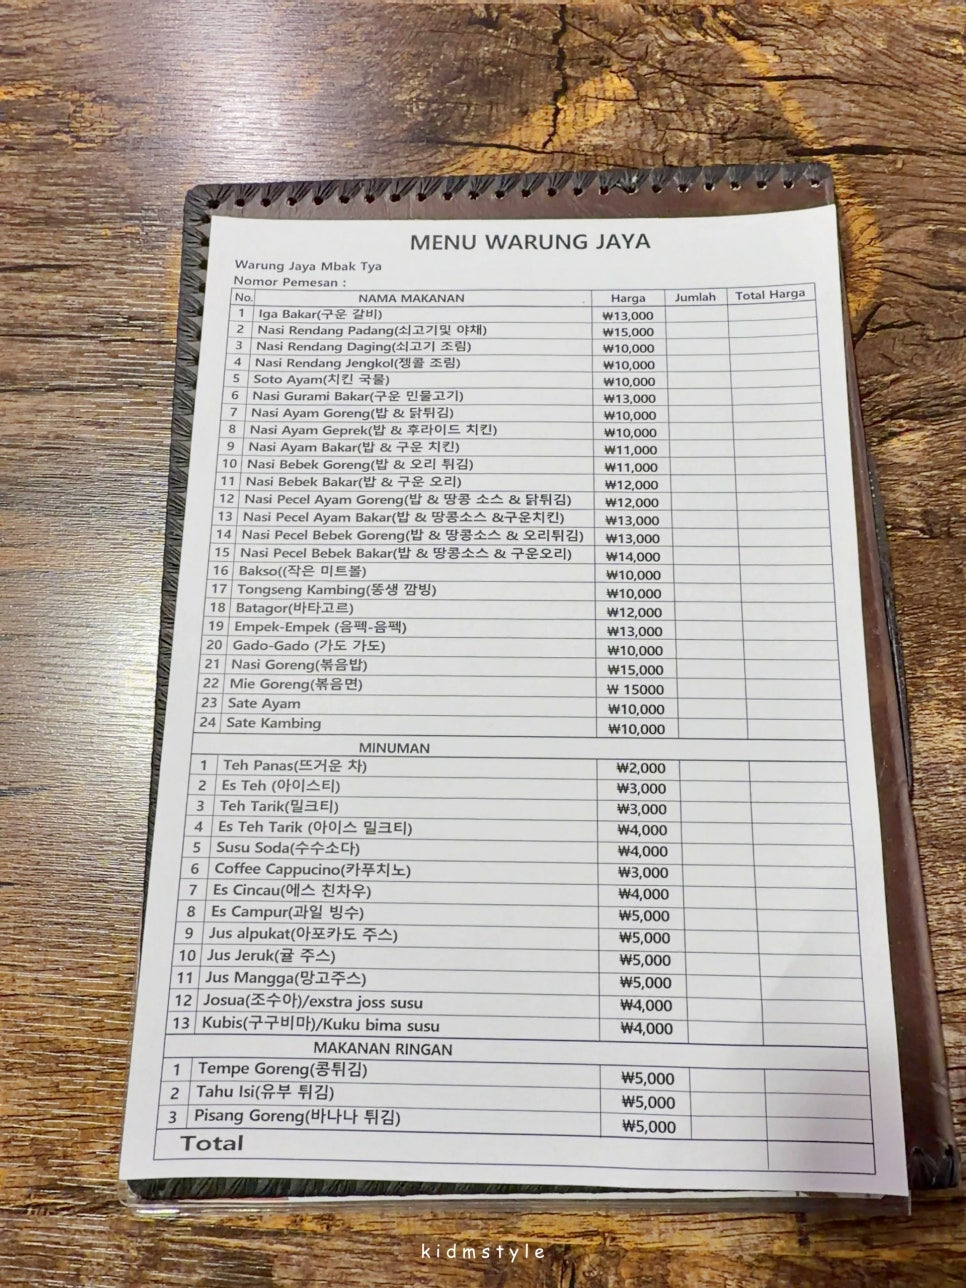 MENU WARUNG JAYA
Warung Jaya Mbak Tya
Nomor Pemesan :
No. NAMA MAKANAN Harga Jumlah Total Harga
1 Iga Bakar(구운 갈비) ₩13,000
2 Nasi Rendang Padang(쇠고기및 야채) ₩15,000
3 Nasi Rendang Daging(쇠고기 조림) ₩10,000
4 Nasi Rendang Jengkol(젱콜 조림) ₩10,000
5 Soto Ayam(치킨 국물) ₩10,000
6 Nasi Gurami Bakar(구운 민물고기) ₩13,000
7 Nasi Ayam Goreng(밥 & 닭튀김) ₩10,000
8 Nasi Ayam Geprek(밥 & 후라이드 치킨) ₩10,000
9 Nasi Ayam Bakar(밥 & 구운 치킨) ₩11,000
10 Nasi Bebek Goreng(밥 & 오리 튀김) ₩11,000
11 Nasi Bebek Bakar(밥 & 구운 오리) ₩12,000
12 Nasi Pecel Ayam Goreng(밥 & 땅콩 소스 & 닭튀김) ₩12,000
13 Nasi Pecel Ayam Bakar(밥 & 땅콩소스 &구운치킨) ₩13,000
14 Nasi Pecel Bebek Goreng(밥 & 땅콩소스 & 오리튀김) ₩13,000
15 Nasi Pecel Bebek Bakar(밥 & 땅콩소스 & 구운오리) ₩14,000
16 Bakso((작은 미트볼) ₩10,000
17 Tongseng Kambing(똥생 깜빙) ₩10,000
18 Batagor(바타고르) ₩12,000
19 Empek-Empek (음펙-음펙) ₩13,000
20 Gado-Gado (가도 가도) ₩10,000
21 Nasi Goreng(볶음밥) ₩15,000
22 Mie Goreng(볶음면) ₩ 15000
23 Sate Ayam ₩10,000
24 Sate Kambing ₩10,000
MINUMAN
1 Teh Panas(뜨거운 차) ₩2,000
2 Es Teh (아이스티) ₩3,000
3 Teh Tarik(밀크티) ₩3,000
4 Es Teh Tarik (아이스 밀크티) ₩4,000
5 Susu Soda(수수소다) ₩4,000
6 Coffee Cappucino(카푸치노) ₩3,000
7 Es Cincau(에스 친차우) ₩4,000
8 Es Campur(과일 빙수) ₩5,000
9 Jus alpukat(아포카도 주스) ₩5,000
10 Jus Jeruk(귤 주스) ₩5,000
11 Jus Mangga(망고주스) ₩5,000
12 Josua(조수아)/exstra joss susu ₩4,000
13 Kubis(구구비마)/Kuku bima susu ₩4,000
MAKANAN RINGAN
1 Tempe Goreng(콩튀김) ₩5,000
2 Tahu Isi(유부 튀김) ₩5,000
3 Pisang Goreng(바나나 튀김) ₩5,000
Total
kidmstyle